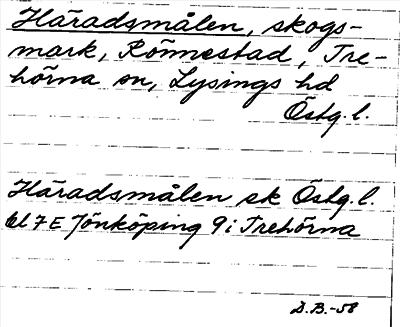 Häradsmålen, skogs-
mark, Rönnestad, Tre-
hörna sn, Lysings hd
Östg. l.
Häradsmålen sk Östg. l.
bl 7E Jönköping 9i Trehörna
D.B.-58